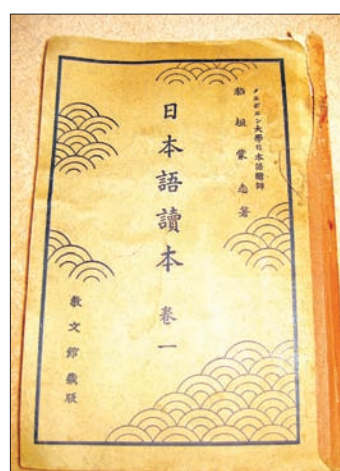 メルボルン大學日本語講師
稻垣蒙志著
日本語讀本 卷一
教文館藏版